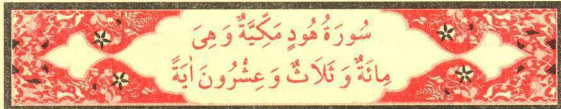 سُورَةُ هُودٍ مَكِّيَّةٌ وَهِىَ
مِائَةٌ وَ ثَلَاثٌ وَ عِشْرُونَ اٰيَةً